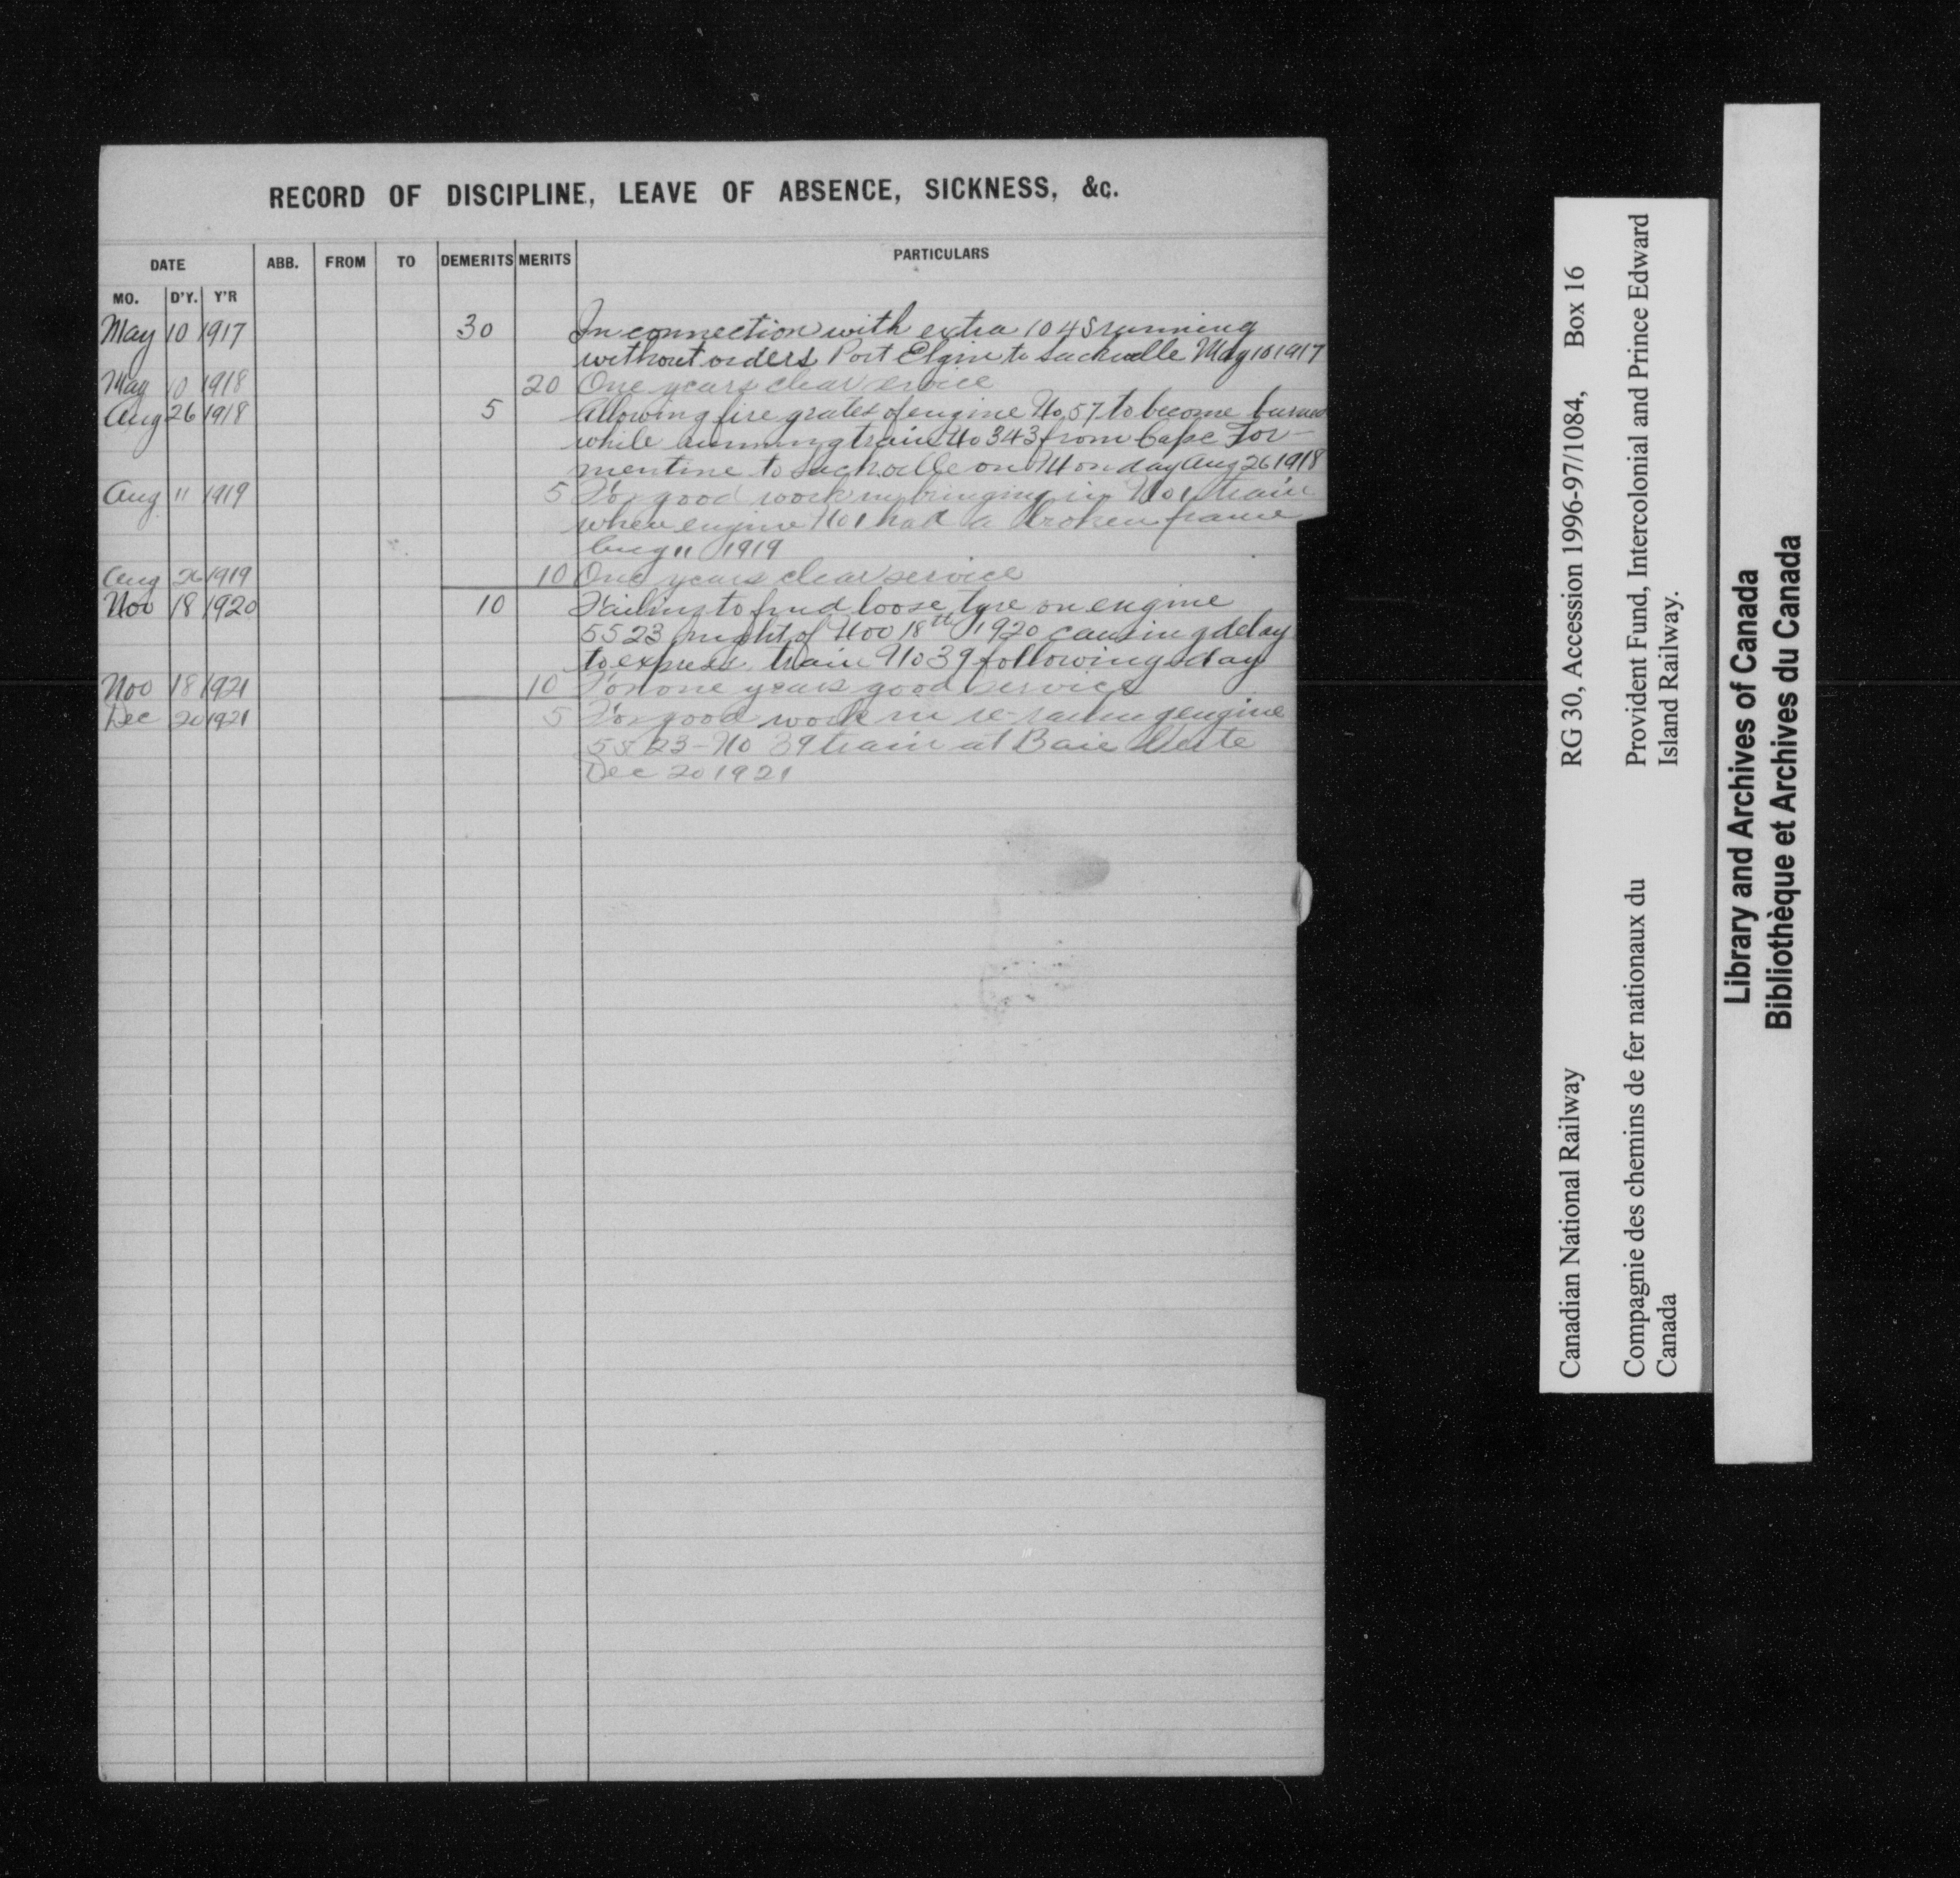 RECORD OF DISCIPLINE, LEAVE OF ABSENCE, SICKNESS, &c.
DATE ABB. FROM TO DEMERITS MERITS PARTICULARS
MO. D'Y. Y'R
May 10 1917 30 In connection with extra 1045 running
without orders Port Elgin to Sackville May 10 1917
May 10 1918 20 One years clear service
Aug 26 1918 5 Allowing fire grates of engine No 57 to become burned
while running train No 343 from Cape Tor-
mentine to Sackville on Monday Aug 26 1918
Aug 11 1919 5 For good work in bringing in No 1 train
when engine No 1 had a broken frame
Aug 11 1919
Aug 26 1919 10 One years clear service
Nov 18 1920 10 Failing to find loose tyre on engine
5523 night of Nov 18th 1920 causing delay
to express train No 39 following day
Nov 18 1921 10 For one years good service
Dec 20 1921 5 For good work in re-railing engine
5523 - No 39 train at Baie Verte
Dec 20 1921
RG 30, Accession 1996-97/1084, Box 16
Provident Fund, Intercolonial and Prince Edward
Island Railway.
Canadian National Railway
Compagnie des chemins de fer nationaux du
Canada
Library and Archives of Canada
Bibliothèque et Archives du Canada